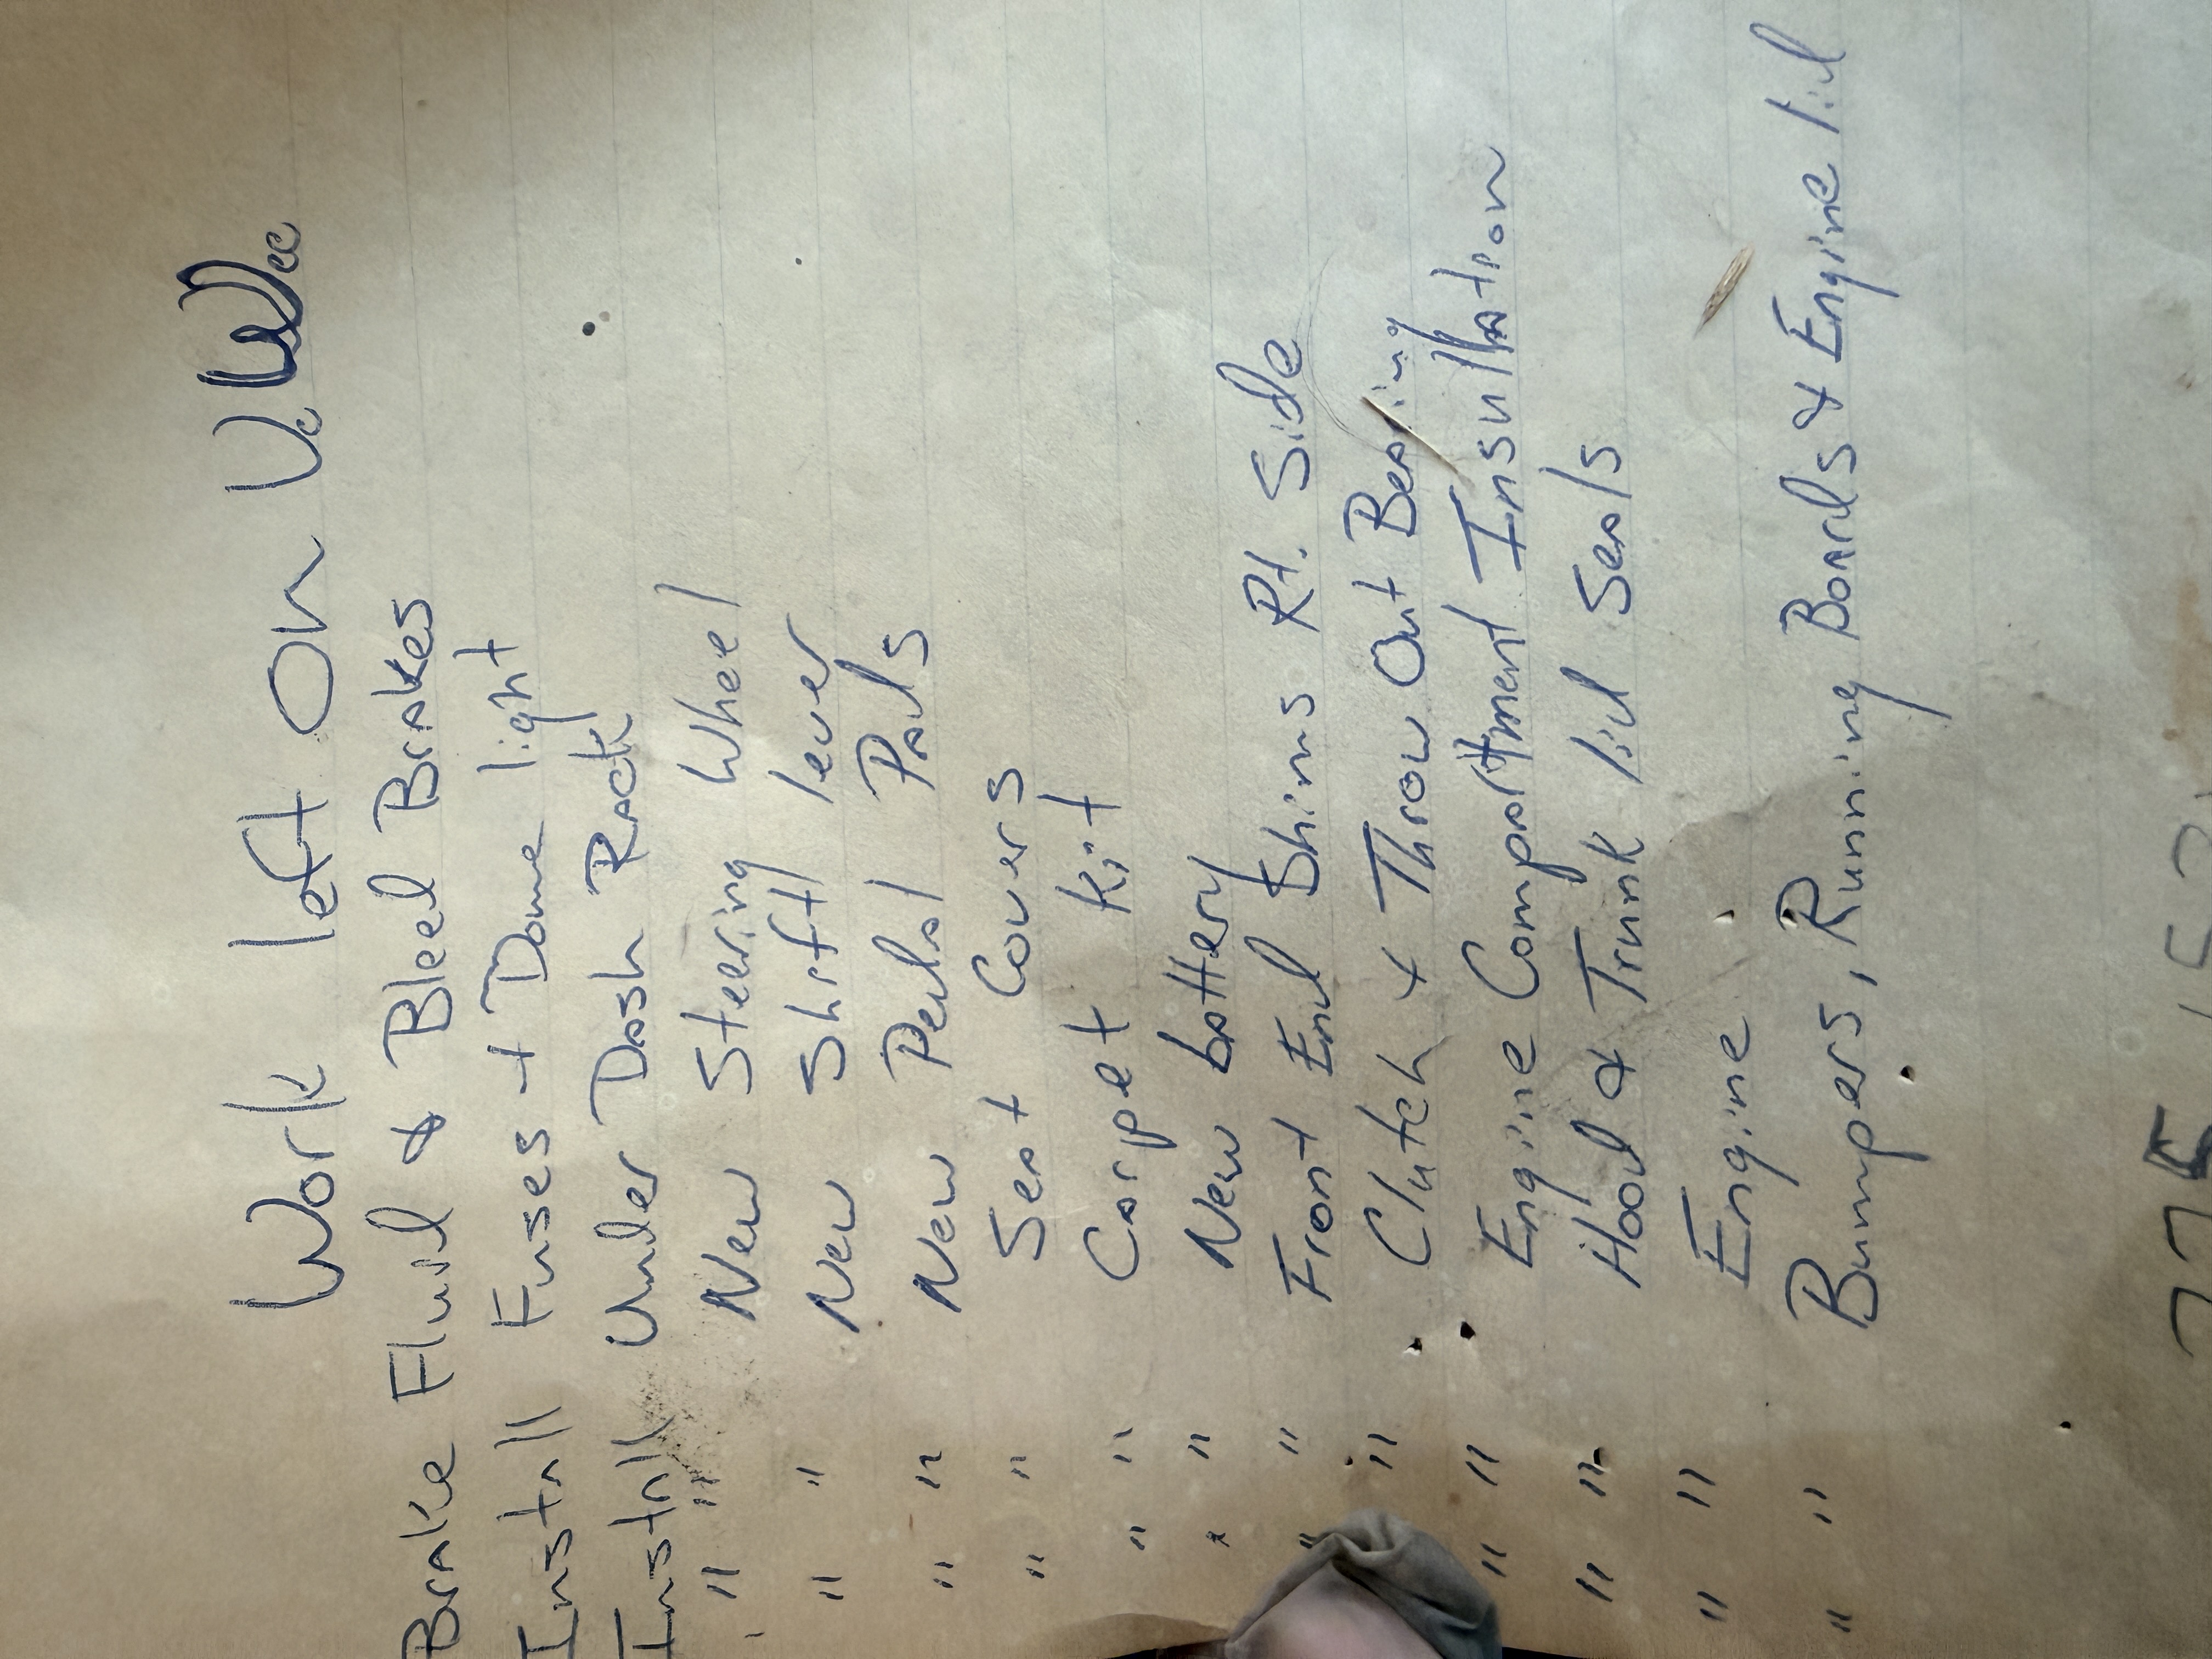 Work left On
Brake Fluid & Bleed Brakes
Install Fuses + Dome light
Install Under Dash Rack
" " New Steering Wheel
" " New Shift lever
" " New Pedal Pads
" " Seat Covers
" " Carpet Kit
" " New battery
" " Front End Shims Rt. Side
" Clutch & Throw Out Bearing
" " Engine Compartment Insullation
" " Hood & Trunk lid Seals
" " Engine
" " Bumpers, Running Boards & Engine lid